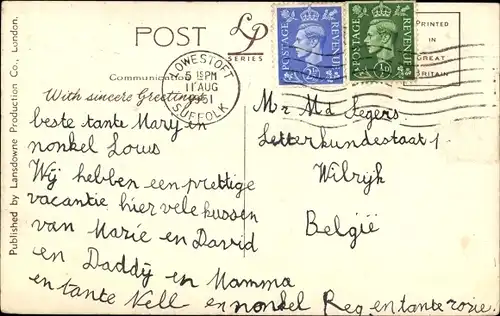 POST
LP
SERIES
POSTAGE REVENUE
2½D
POSTAGE REVENUE
½D
PRINTED
IN
GREAT
BRITAIN
LOWESTOFT
5 15 PM
11 AUG
1951
SUFFOLK
Communication
With sincere Greetings
beste tante Mary en
nonkel Louis
Wij hebben een prettige
vacantie hier vele kussen
van Marie en David
en Daddy en Mamma
en tante Nell en nonkel Reg en tante rozie
Mr Md Segers
Letterkundestraat 1
Wilrijk
België
Published by Lansdowne Production Co., London.